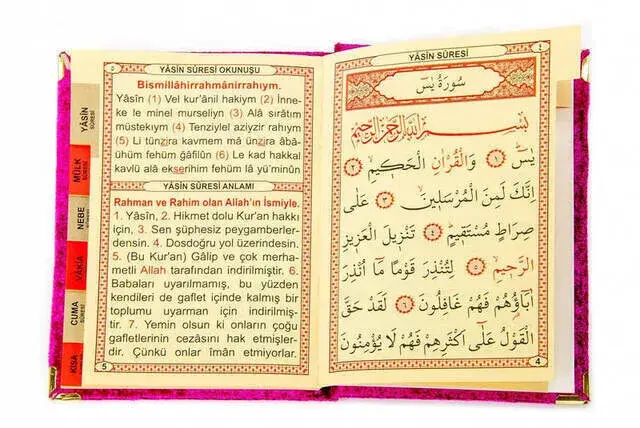 YÂSİN SÛRESİ
٤
سُورَةُ يٰسٓ
بِسْمِ اللّٰهِ الرَّحْمٰنِ الرَّحِيمِ
يٰسٓ ﴿١﴾ وَالْقُرْاٰنِ الْحَكِيمِۙ ﴿٢﴾
اِنَّكَ لَمِنَ الْمُرْسَلِينَۙ ﴿٣﴾ عَلٰى
صِرَاطٍ مُسْتَقِيمٍۜ ﴿٤﴾ تَنْزِيلَ الْعَزِيزِ
الرَّحِيمِۙ ﴿٥﴾ لِتُنْذِرَ قَوْمًا مَٓا اُنْذِرَ
اٰبَٓاؤُهُمْ فَهُمْ غَافِلُونَ ﴿٦﴾ لَقَدْ حَقَّ
الْقَوْلُ عَلٰٓى اَكْثَرِهِمْ فَهُمْ لَا يُؤْمِنُونَ
4
٥
YÂSİN SÛRESİ OKUNUŞU
Bismillâhirrahmânirrahıym.
Yâsîn (1) Vel kur'ânil hakiym (2) İnne-
ke le minel murseliyn (3) Alâ sırâtım
müstekıym (4) Tenziylel aziyzir rahıym
(5) Li tünzira kavmem mâ ünzira âbâ-
ühüm fehüm ğâfilûn (6) Le kad hakkal
kavlü alâ ekserihim fehüm lâ yü'minûn
YÂSİN SÛRESİ ANLAMI
Rahman ve Rahim olan Allah'ın İsmiyle.
1. Yâsîn, 2. Hikmet dolu Kur'an hakkı
için, 3. Sen şüphesiz peygamberler-
densin. 4. Dosdoğru yol üzerindesin.
5. (Bu Kur'an) Gâlip ve çok merha-
metli Allah tarafından indirilmiştir. 6.
Babaları uyarılmamış, bu yüzden
kendileri de gaflet içinde kalmış bir
toplumu uyarman için indirilmiş-
tir. 7. Yemin olsun ki onların çoğu
gafletlerinin cezasını hak etmişler-
dir. Çünkü onlar îmân etmiyorlar.
5
YÂSİN
SÛRESİ
MÜLK
SÛRESİ
NEBE
SÛRESİ
VAKIA
SÛRESİ
CUMA
SÛRESİ
KISA